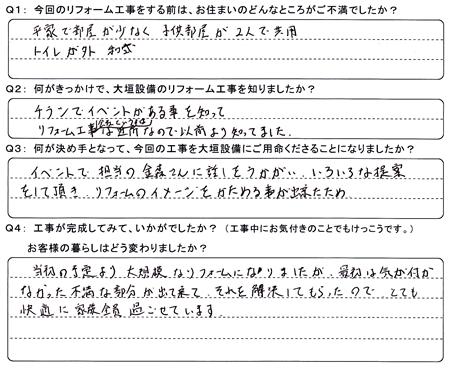 Q1: 今回のリフォーム工事をする前は、お住まいのどんなところがご不満でしたか?
平家で部屋が少なく 子供部屋が2人で共用
トイレが外 和式
Q2: 何がきっかけで、大垣設備のリフォーム工事を知りましたか?
チラシでイベントがある事を知って
リフォーム工事は近所なので以前より知ってました。
Q3: 何が決め手となって、今回の工事を大垣設備にご用命くださることになりましたか?
イベントで担当の金森さんに話しをうかがい、いろいろな提案
をして頂き リフォームのイメージをかためる事が出来たため
Q4: 工事が完成してみて、いかがでしたか? (工事中にお気付きのことでもけっこうです。)
お客様の暮らしはどう変わりましたか?
当初の予定より大規模なリフォームになりましたが、最初は気が付か
なかった不満な部分が出て来て、それを解決してもらったので とても
快適に家族全員過ごせています